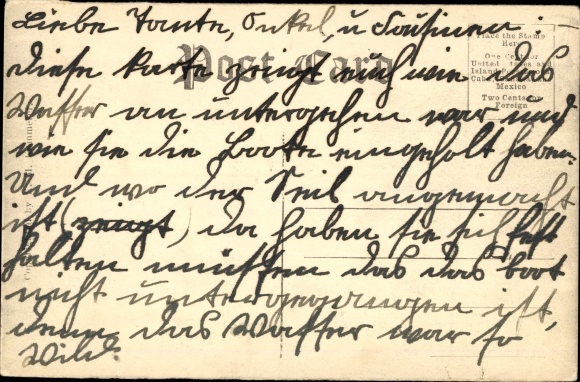 Liebe Tante, Onkel, u Cousinen.
Post Card
Place the Stamp
Here
diese Karte zeigt euch wie das
One Cent for
United States and
Island
Cuba
Mexico
Two Cents for
Foreign
Wasser am untergehen war und
wie sie die Boote eingeholt haben.
Und wo der Seil angemacht
ist (zeigt) da haben sie sich fest
halten müssen das das boot
nicht untergegangen ist,
denn das Wasser war so
Wild.